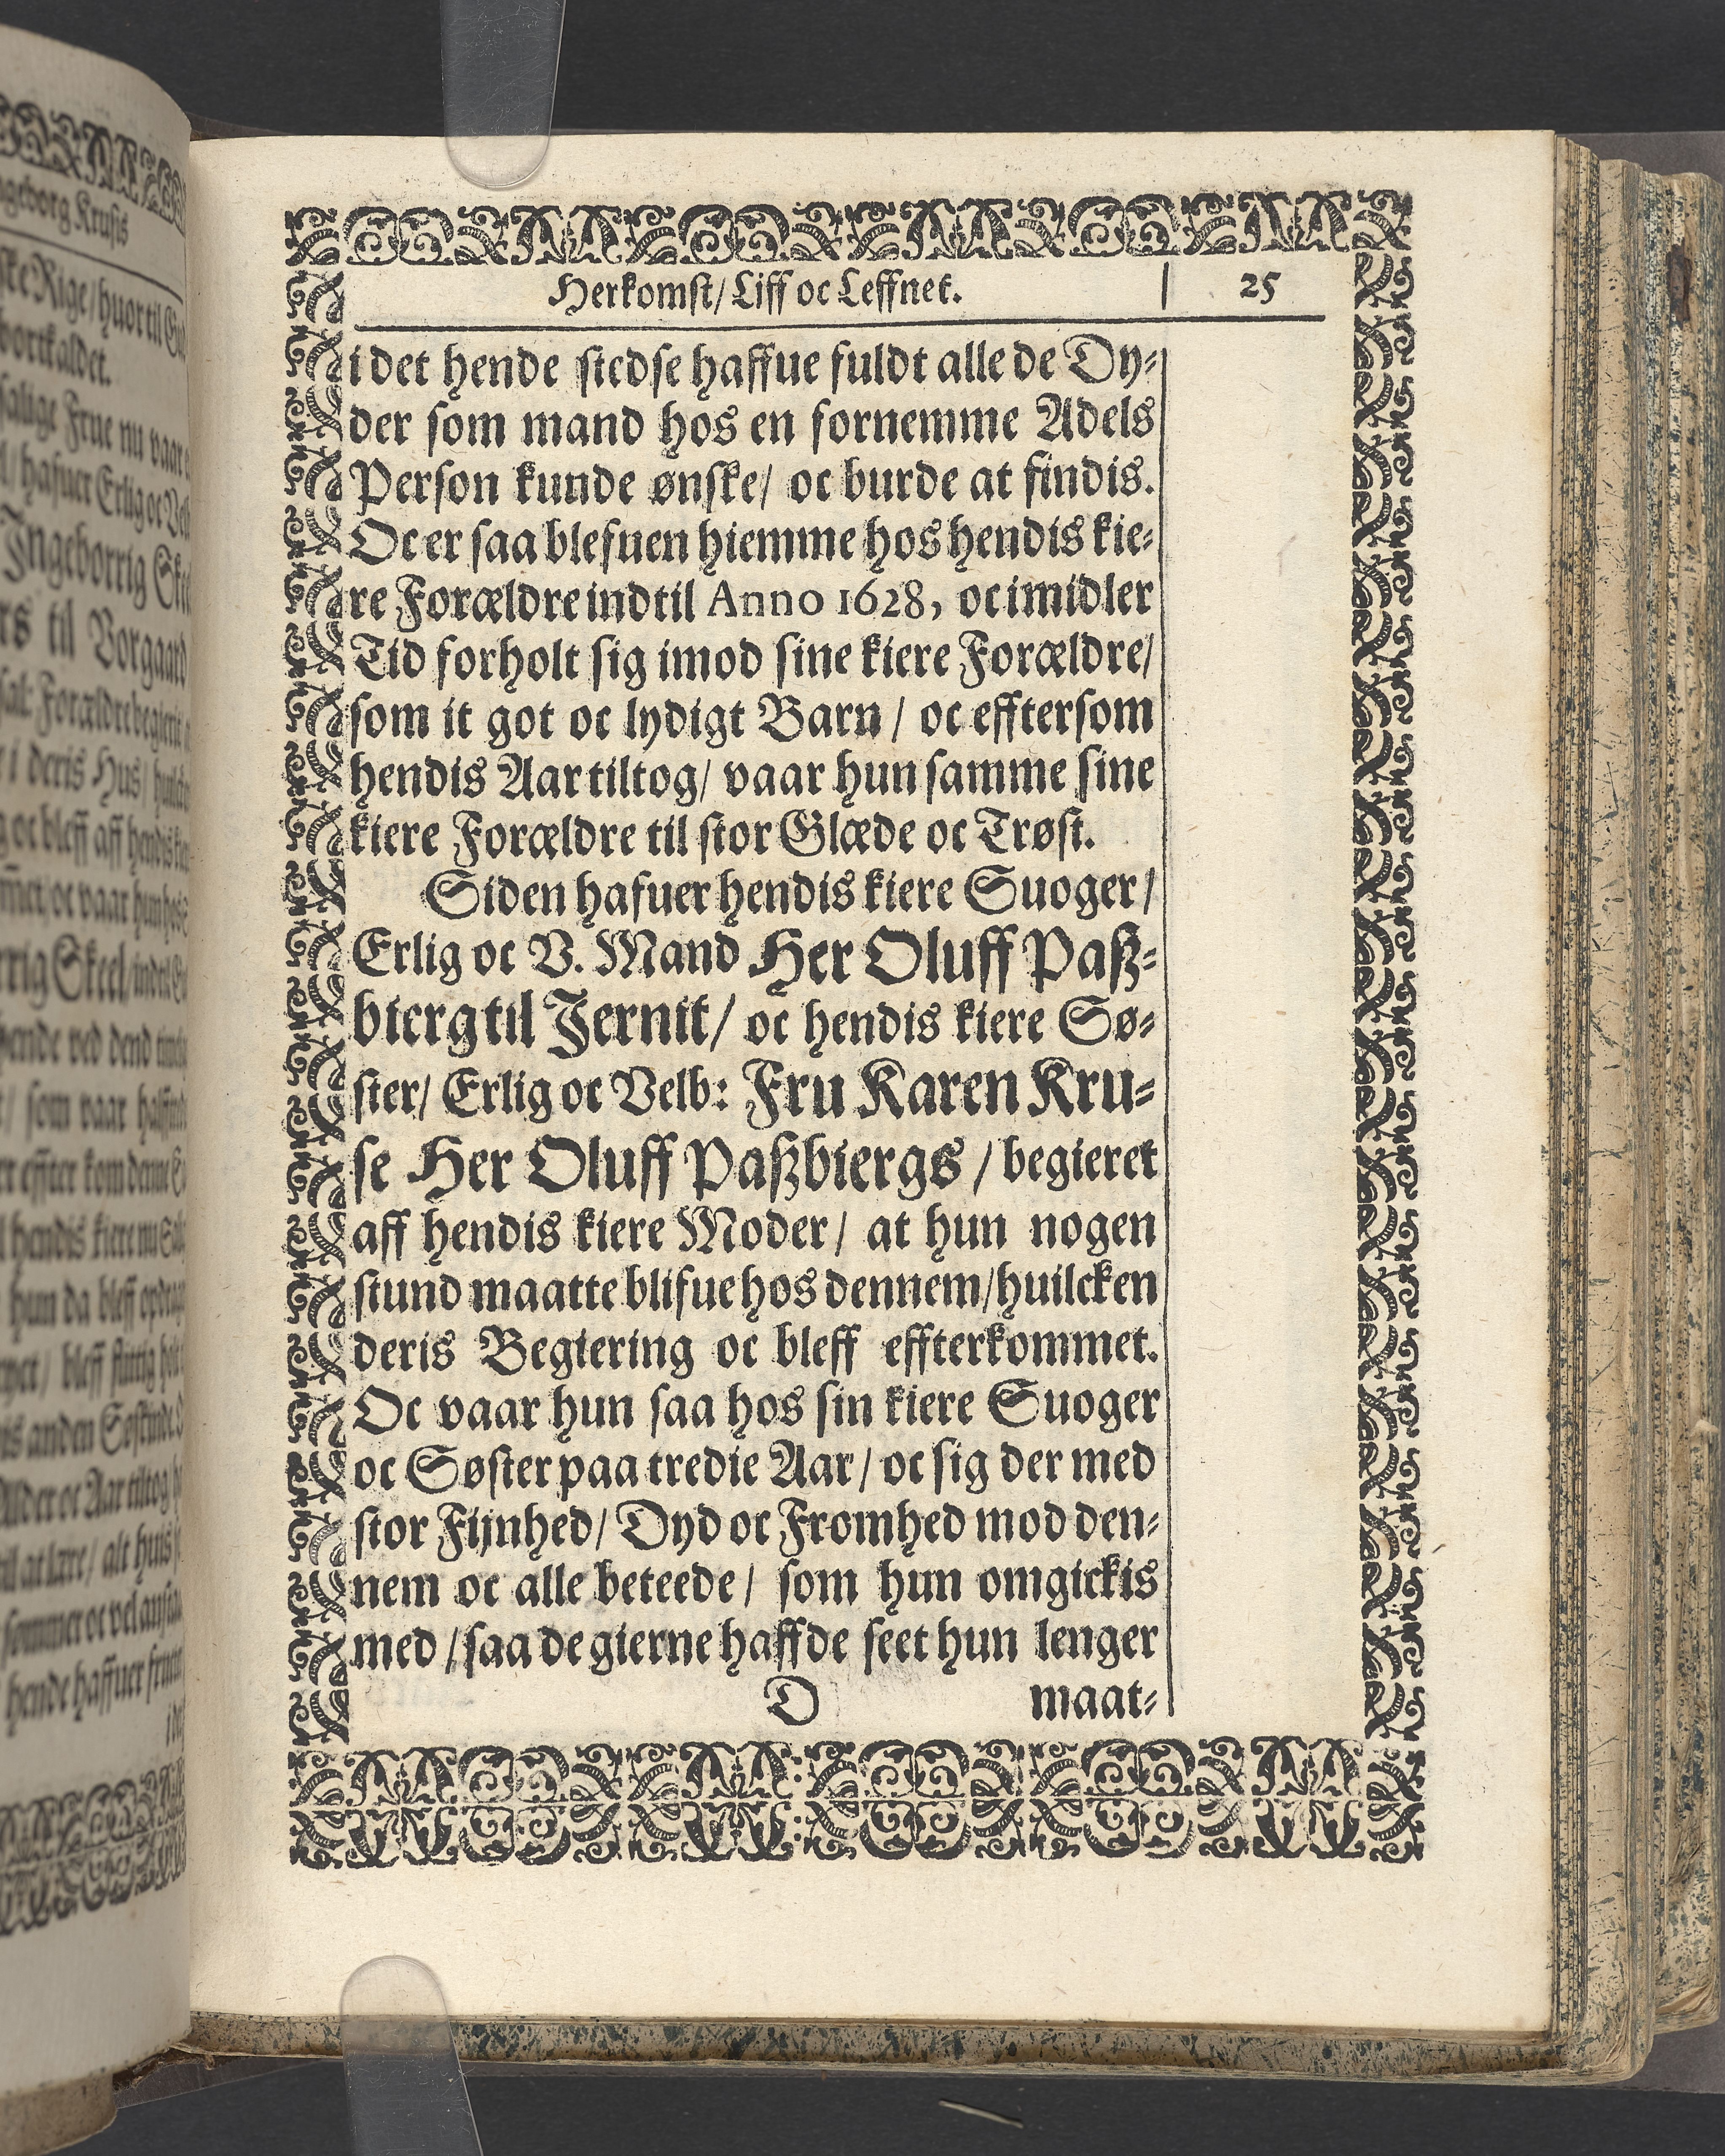 Herkomst/ Liff oc Leffnet. 25
i det hende stedse haffue fuldt alle de Dy-
der som mand hos en fornemme Adels
Person kunde ønske/ oc burde at findis.
Oc er saa blefuen hiemme hos hendis kie-
re Forældre indtil Anno 1628, oc imidler
Tid forholt sig imod sine kiere Forældre/
som it got oc lydigt Barn/ oc efftersom
hendis Aar tiltog/ vaar hun samme sine
kiere Forældre til stor Glæde oc Trøst.
Siden hafuer hendis kiere Suoger/
Erlig oc V. Mand Her Oluff Paß-
bierg til Jernit/ oc hendis kiere Sø-
ster/ Erlig oc Velb: Fru Karen Kru-
se Her Oluff Paßbiergs/ begieret
aff hendis kiere Moder/ at hun nogen
stund maatte blifue hos dennem/ huilcken
deris Begiering oc bleff effterkommet.
Oc vaar hun saa hos sin kiere Suoger
oc Søster paa tredie Aar/ oc sig der med
stor Fijnhed/ Dyd oc Fromhed mod den-
nem oc alle beteede/ som hun omgickis
med/ saa de gierne haffde seet hun lenger
D maat-